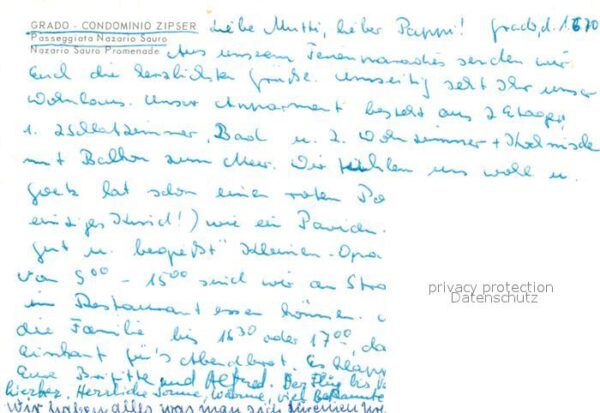 GRADO - CONDOMINIO ZIPSER
Passeggiata Nazario Sauro
Nazario Sauro Promenade
Liebe Mutti, lieber Pappi! Grado, d. 1.6.70
Aus unserem Ferienparadies senden wir
Euch die herzlichsten Grüße. Umseitig seht Ihr unser
Wohnhaus. Unser Appartment besteht aus 2 Etagen,
1. 2 Schlafzimmer, Bad u. 2. Wohnzimmer + Kochnische
mit Balkon zum Meer. Wir fühlen uns wohl u.
Goetz hat schon einen roten Po
einziges Kind!) wie ein Pavian.
gut u. Kleinen
von 9 00 - 15 00 sind wir am Stra
im Restaurant essen können.
die Familie bis 16 30 oder 17 00, da
einkauft für's Abendbrot. Es klapp
Eure Brigitte und Alfred. Der Flug bis
hierher. Herrliche Sonne, Wärme, viel Bekannte
Wir haben alles was man sich
privacy protection
Datenschutz